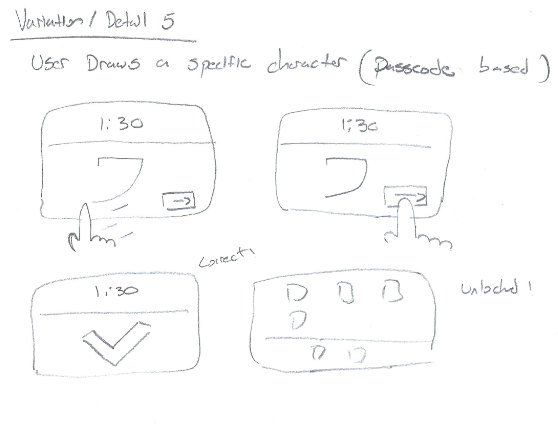 Variation / Detail 5
User Draws a specific character (passcode based)
1:30
フ
→
1:30
フ
→
correct!
1:30
unlocked!